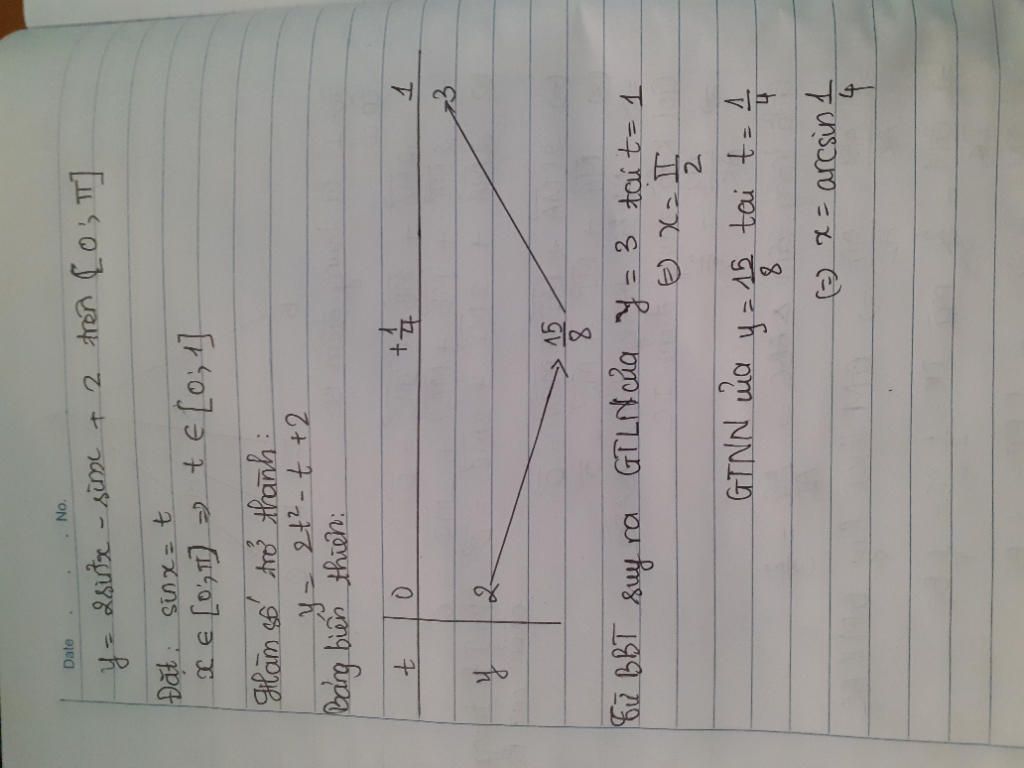 Date No.
y = 2sin²x - sinx + 2 trên [0; π]
Đặt: sinx = t
x ∈ [0; π] => t ∈ [0; 1]
Hàm số trở thành:
y = 2t² - t + 2
Bảng biến thiên:
t 0 +1/4 1
y 2 15/8 3
Từ BBT suy ra GTLN của y = 3 tại t = 1
(=) x = π/2
GTNN của y = 15/8 tại t = 1/4
(=) x = arcsin 1/4